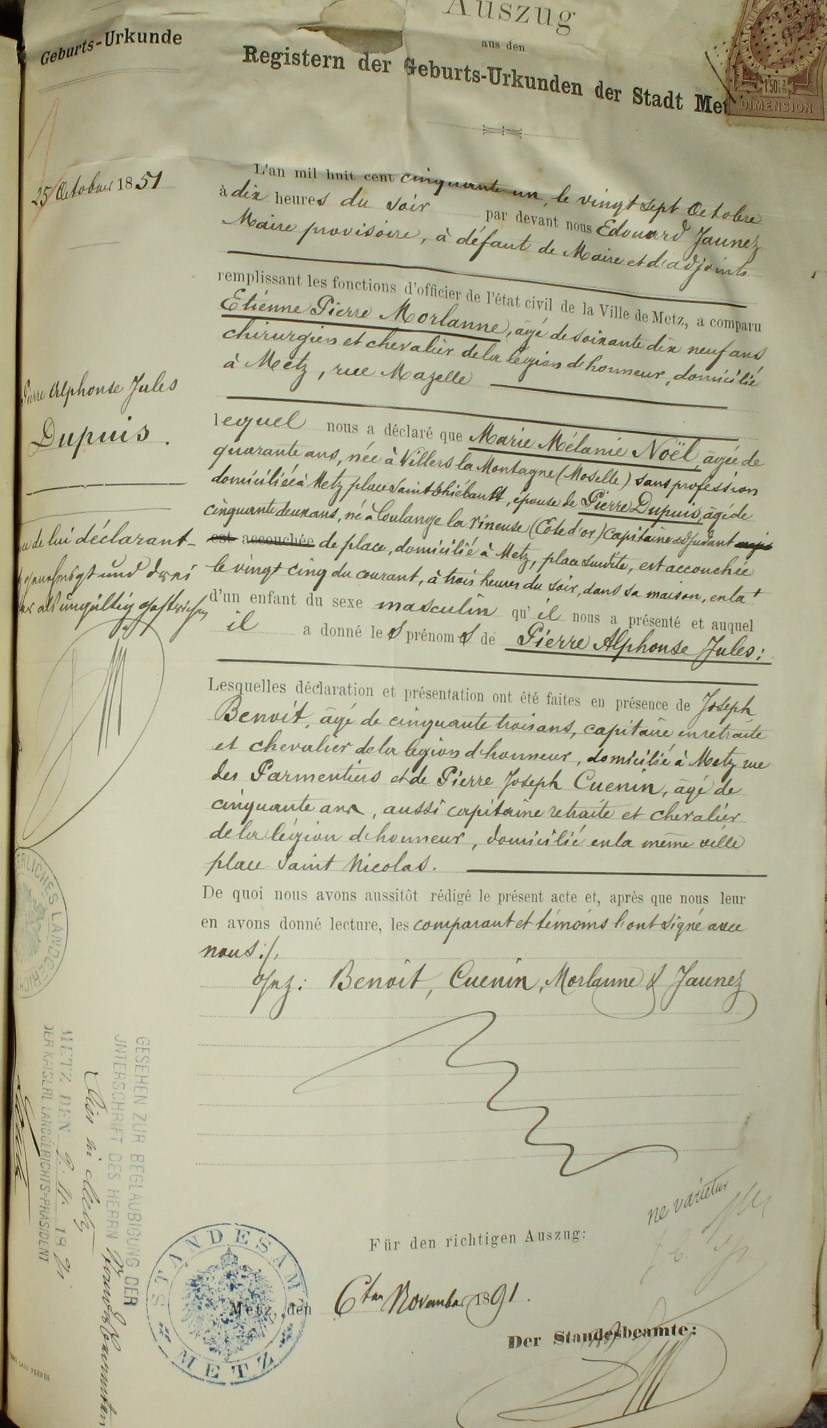 Auszug
aus den
Registern der Geburts-Urkunden der Stadt Met
Geburts-Urkunde
1 50
DIMENSION
25 October 1851
L'an mil huit cent cinquante un, le vingt sept Octobre
à dix heures du soir par devant nous Edouard Jaunez
Maire provisoire, à défaut de Maire et d'adjoints
remplissant les fonctions d'officier de l'état civil de la Ville de Metz, a comparu
Etienne Pierre Morlanne, âgé de soixante dix neuf ans
chirurgien et chevalier de la légion d'honneur, domicilié
à Metz, rue Mazelle
Pierre Alphonse Jules
Dupuis.
lequel nous a déclaré que Marie Mélanie Noël âgée de
quarante ans, née à Villers la Montagne (Moselle) sans profession
domiciliée à Metz place Saint Thiébault, épouse de Pierre Dupuis, âgé de
cinquante deux ans, né à Coulange la Vineuse (Côte d'or) Capitaine adjudant
est accouchée de place, domicilié à Metz, place susdite, est accouchée
le vingt cinq du courant, à trois heures du soir, dans sa maison, en la +
d'un enfant du sexe masculin qu'il nous a présenté et auquel
il a donné les prénoms de Pierre Alphonse Jules:
de lui déclarant
genehmigt und drei
als ungültig gestrichen
Lesquelles déclaration et présentation ont été faites en présence de Joseph
Benoit, âgé de cinquante trois ans, capitaine en retraite
et chevalier de la légion d'honneur, domicilié à Metz rue
des Parmentiers et de Pierre Joseph Cuenin, âgé de
cinquante ans, aussi capitaine retraité et chevalier
de la légion d'honneur, domicilié en la même ville
place Saint Nicolas.
De quoi nous avons aussitôt rédigé le présent acte et, après que nous leur
en avons donné lecture, les comparant et témoins l'ont signé avec
nous./.
gez: Benoit, Cuenin, Morlanne & Jaunez
ERLICHES LANDGERICH
GESEHEN ZUR BEGLAUBIGUNG DER
UNTERSCHRIFT DES HERRN
METZ, DEN 9. 11. 1891
DER KAISERL. LANDGERICHTS-PRÄSIDENT
ne varietur
Für den richtigen Auszug:
STANDESAMT
METZ
Metz, den 6ten November 1891.
Der Standesbeamte: